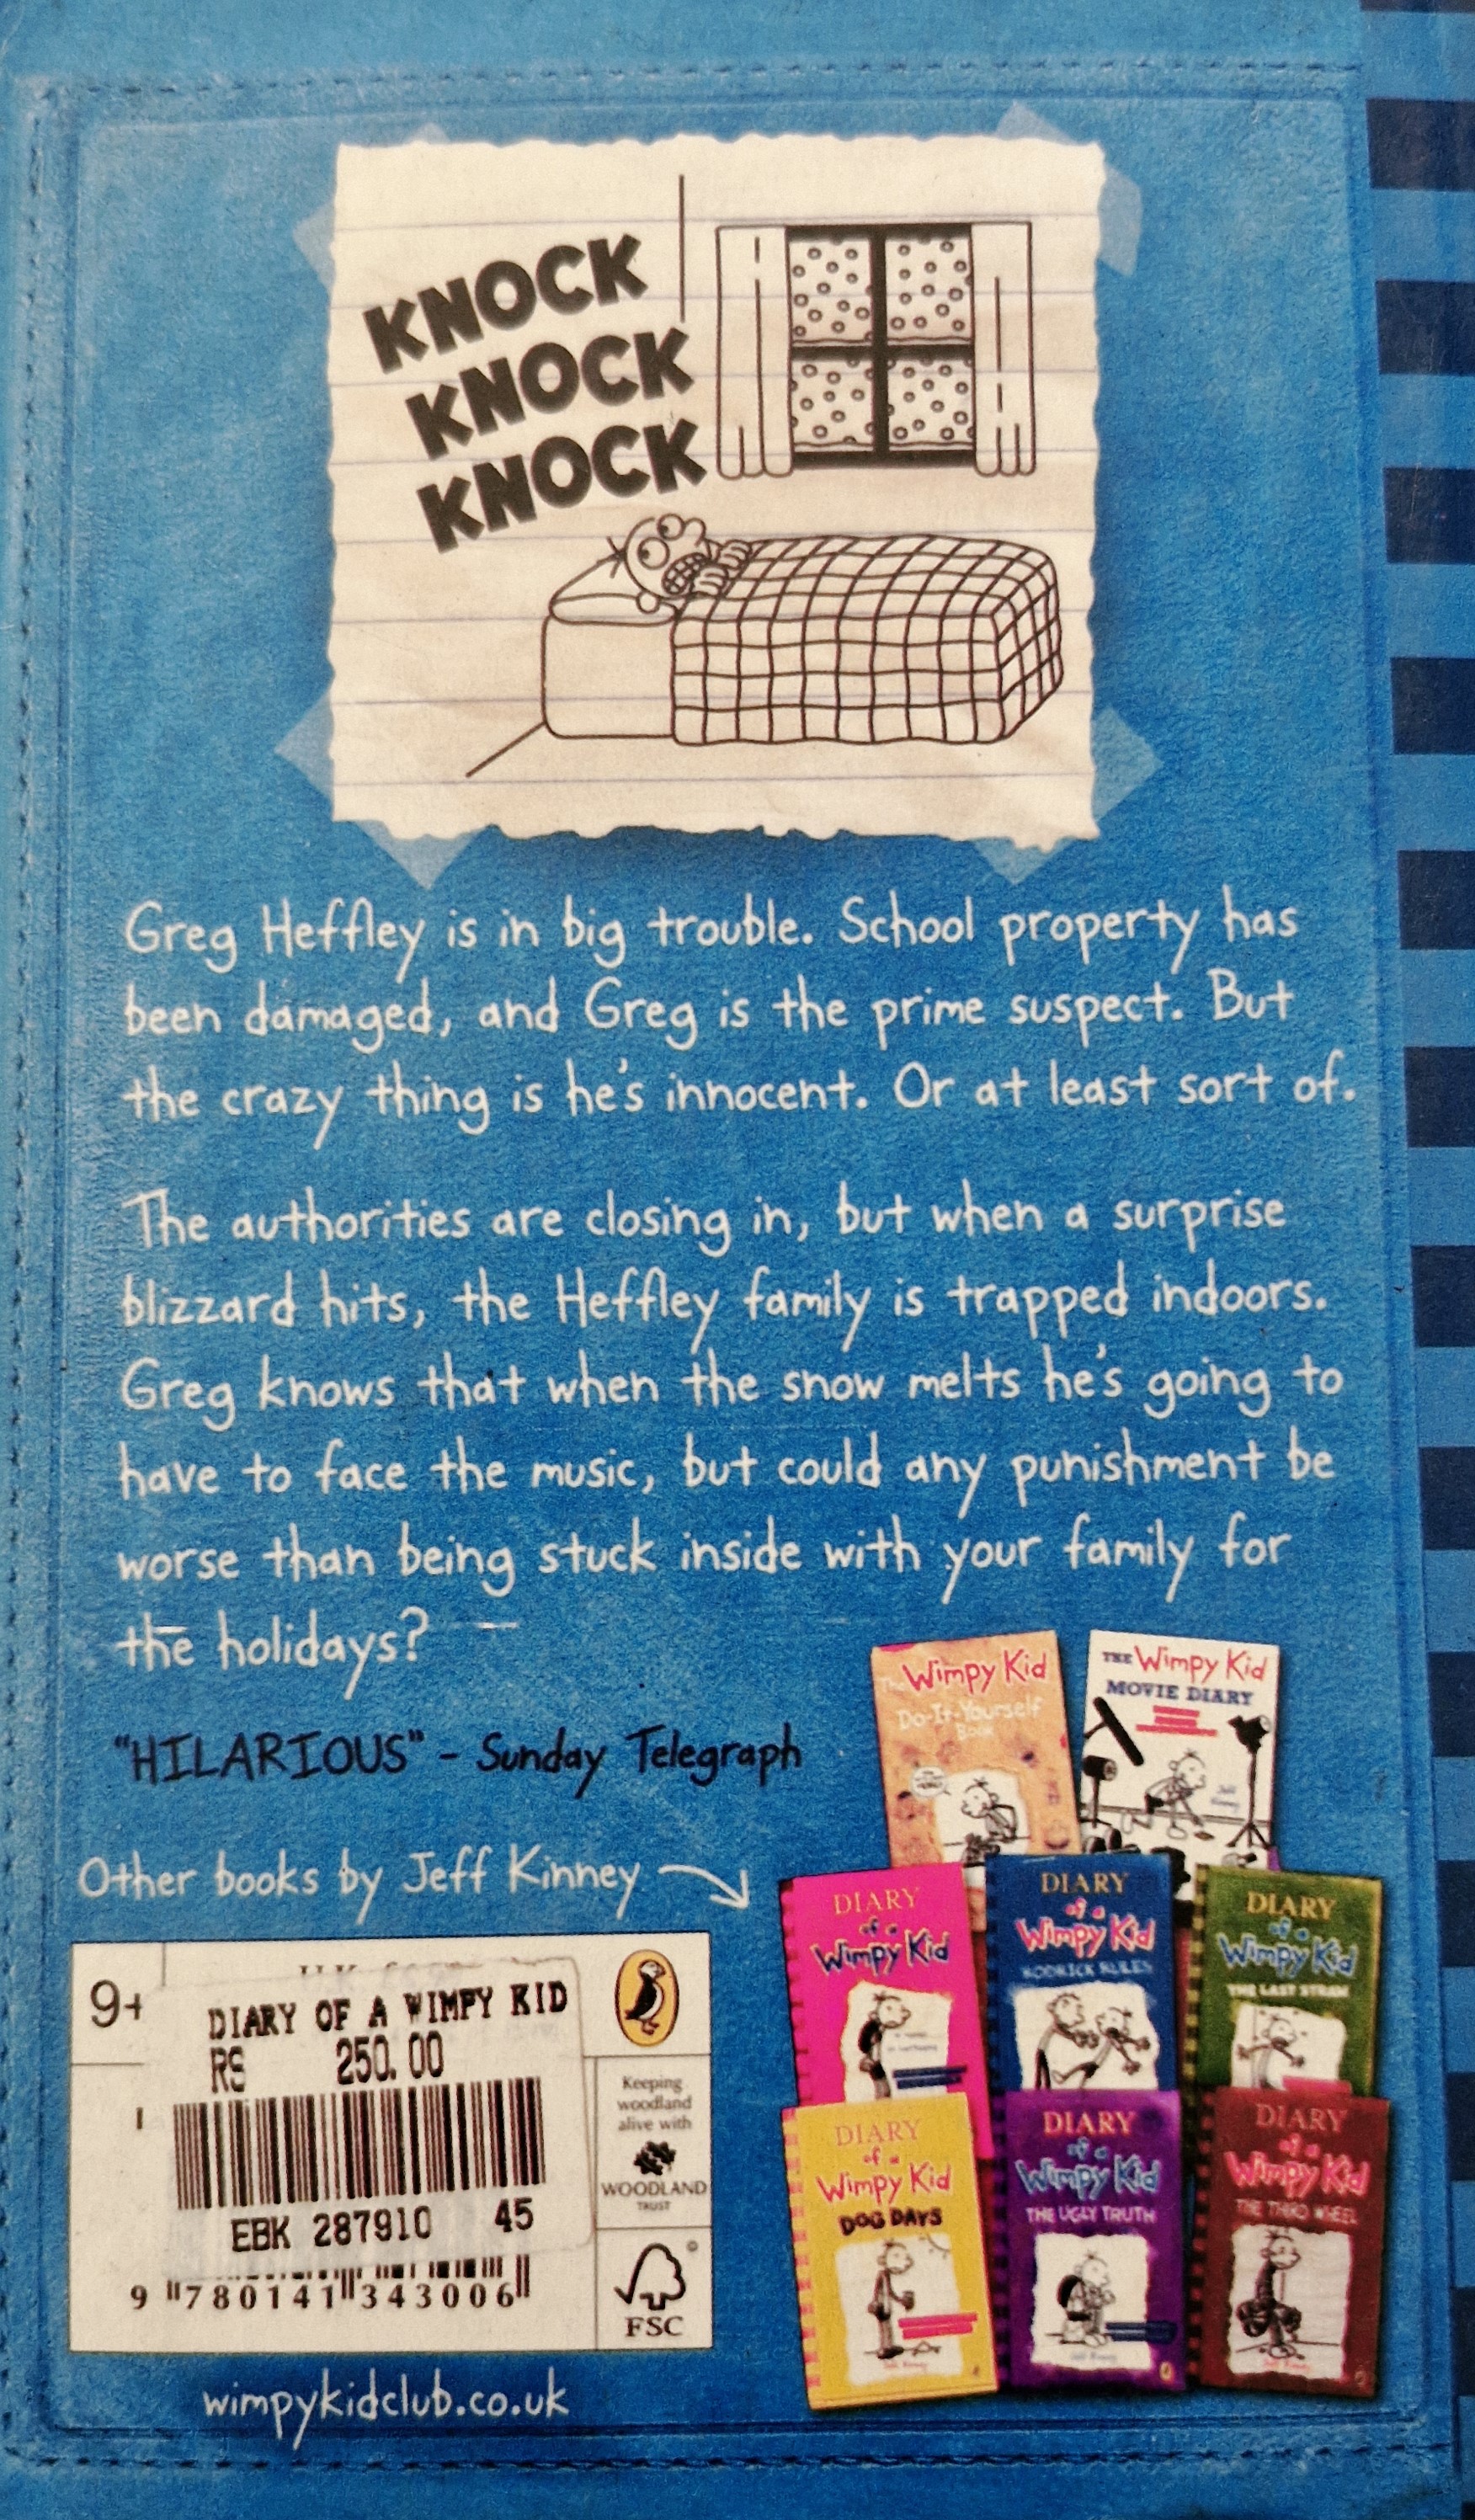 KNOCK
KNOCK
KNOCK
Greg Heffley is in big trouble. School property has
been damaged, and Greg is the prime suspect. But
the crazy thing is he's innocent. Or at least sort of.
The authorities are closing in, but when a surprise
blizzard hits, the Heffley family is trapped indoors.
Greg knows that when the snow melts he's going to
have to face the music, but could any punishment be
worse than being stuck inside with your family for
the holidays?
"HILARIOUS" - Sunday Telegraph
Other books by Jeff Kinney
The Wimpy Kid
Do-It-Yourself
Book
THE Wimpy Kid
MOVIE DIARY
Jeff
Kinney
DIARY
of a
Wimpy Kid
DIARY
of a
Wimpy Kid
RODRICK RULES
DIARY
of a
Wimpy Kid
THE LAST STRAW
DIARY
of a
Wimpy Kid
DOG DAYS
Jeff Kinney
DIARY
of a
Wimpy Kid
THE UGLY TRUTH
Jeff Kinney
DIARY
of a
Wimpy Kid
THE THIRD WHEEL
Jeff Kinney
9+
DIARY OF A WIMPY KID
RS 250.00
EBK 287910 45
9 780141 343006
Keeping
woodland
alive with
WOODLAND
TRUST
FSC
wimpykidclub.co.uk